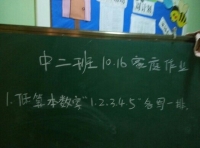 中二班10.16家庭作业
1.任算本数字"1.2.3.4.5"各写一排